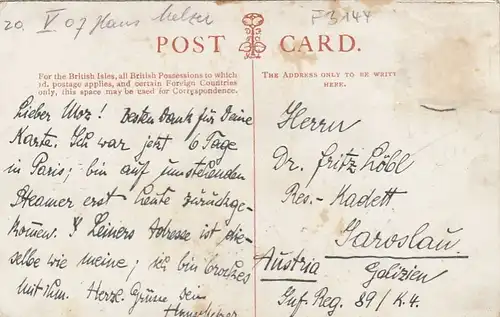 20. V 07 Hans Melzer
F 3144
POST CARD.
For the British Isles, all British Possessions to which
½d. postage applies, and certain Foreign Countries
only, this space may be used for Correspondence.
THE ADDRESS ONLY TO BE WRITT
HERE.
Lieber Moz! besten Dank für Deine
Karte. Ich war jetzt 6 Tage
in Paris; bin auf umstehenden
Steamer erst heute zurückge-
kommen. Leiners Adresse ist die-
selbe wie meine; ich bin
mit ihm. Herzl. Grüsse Dein
Herrn
Dr. Fritz Löbl
Res.- Kadett
Jaroslau.
Austria Galizien
Inf. Reg. 89/K.4.